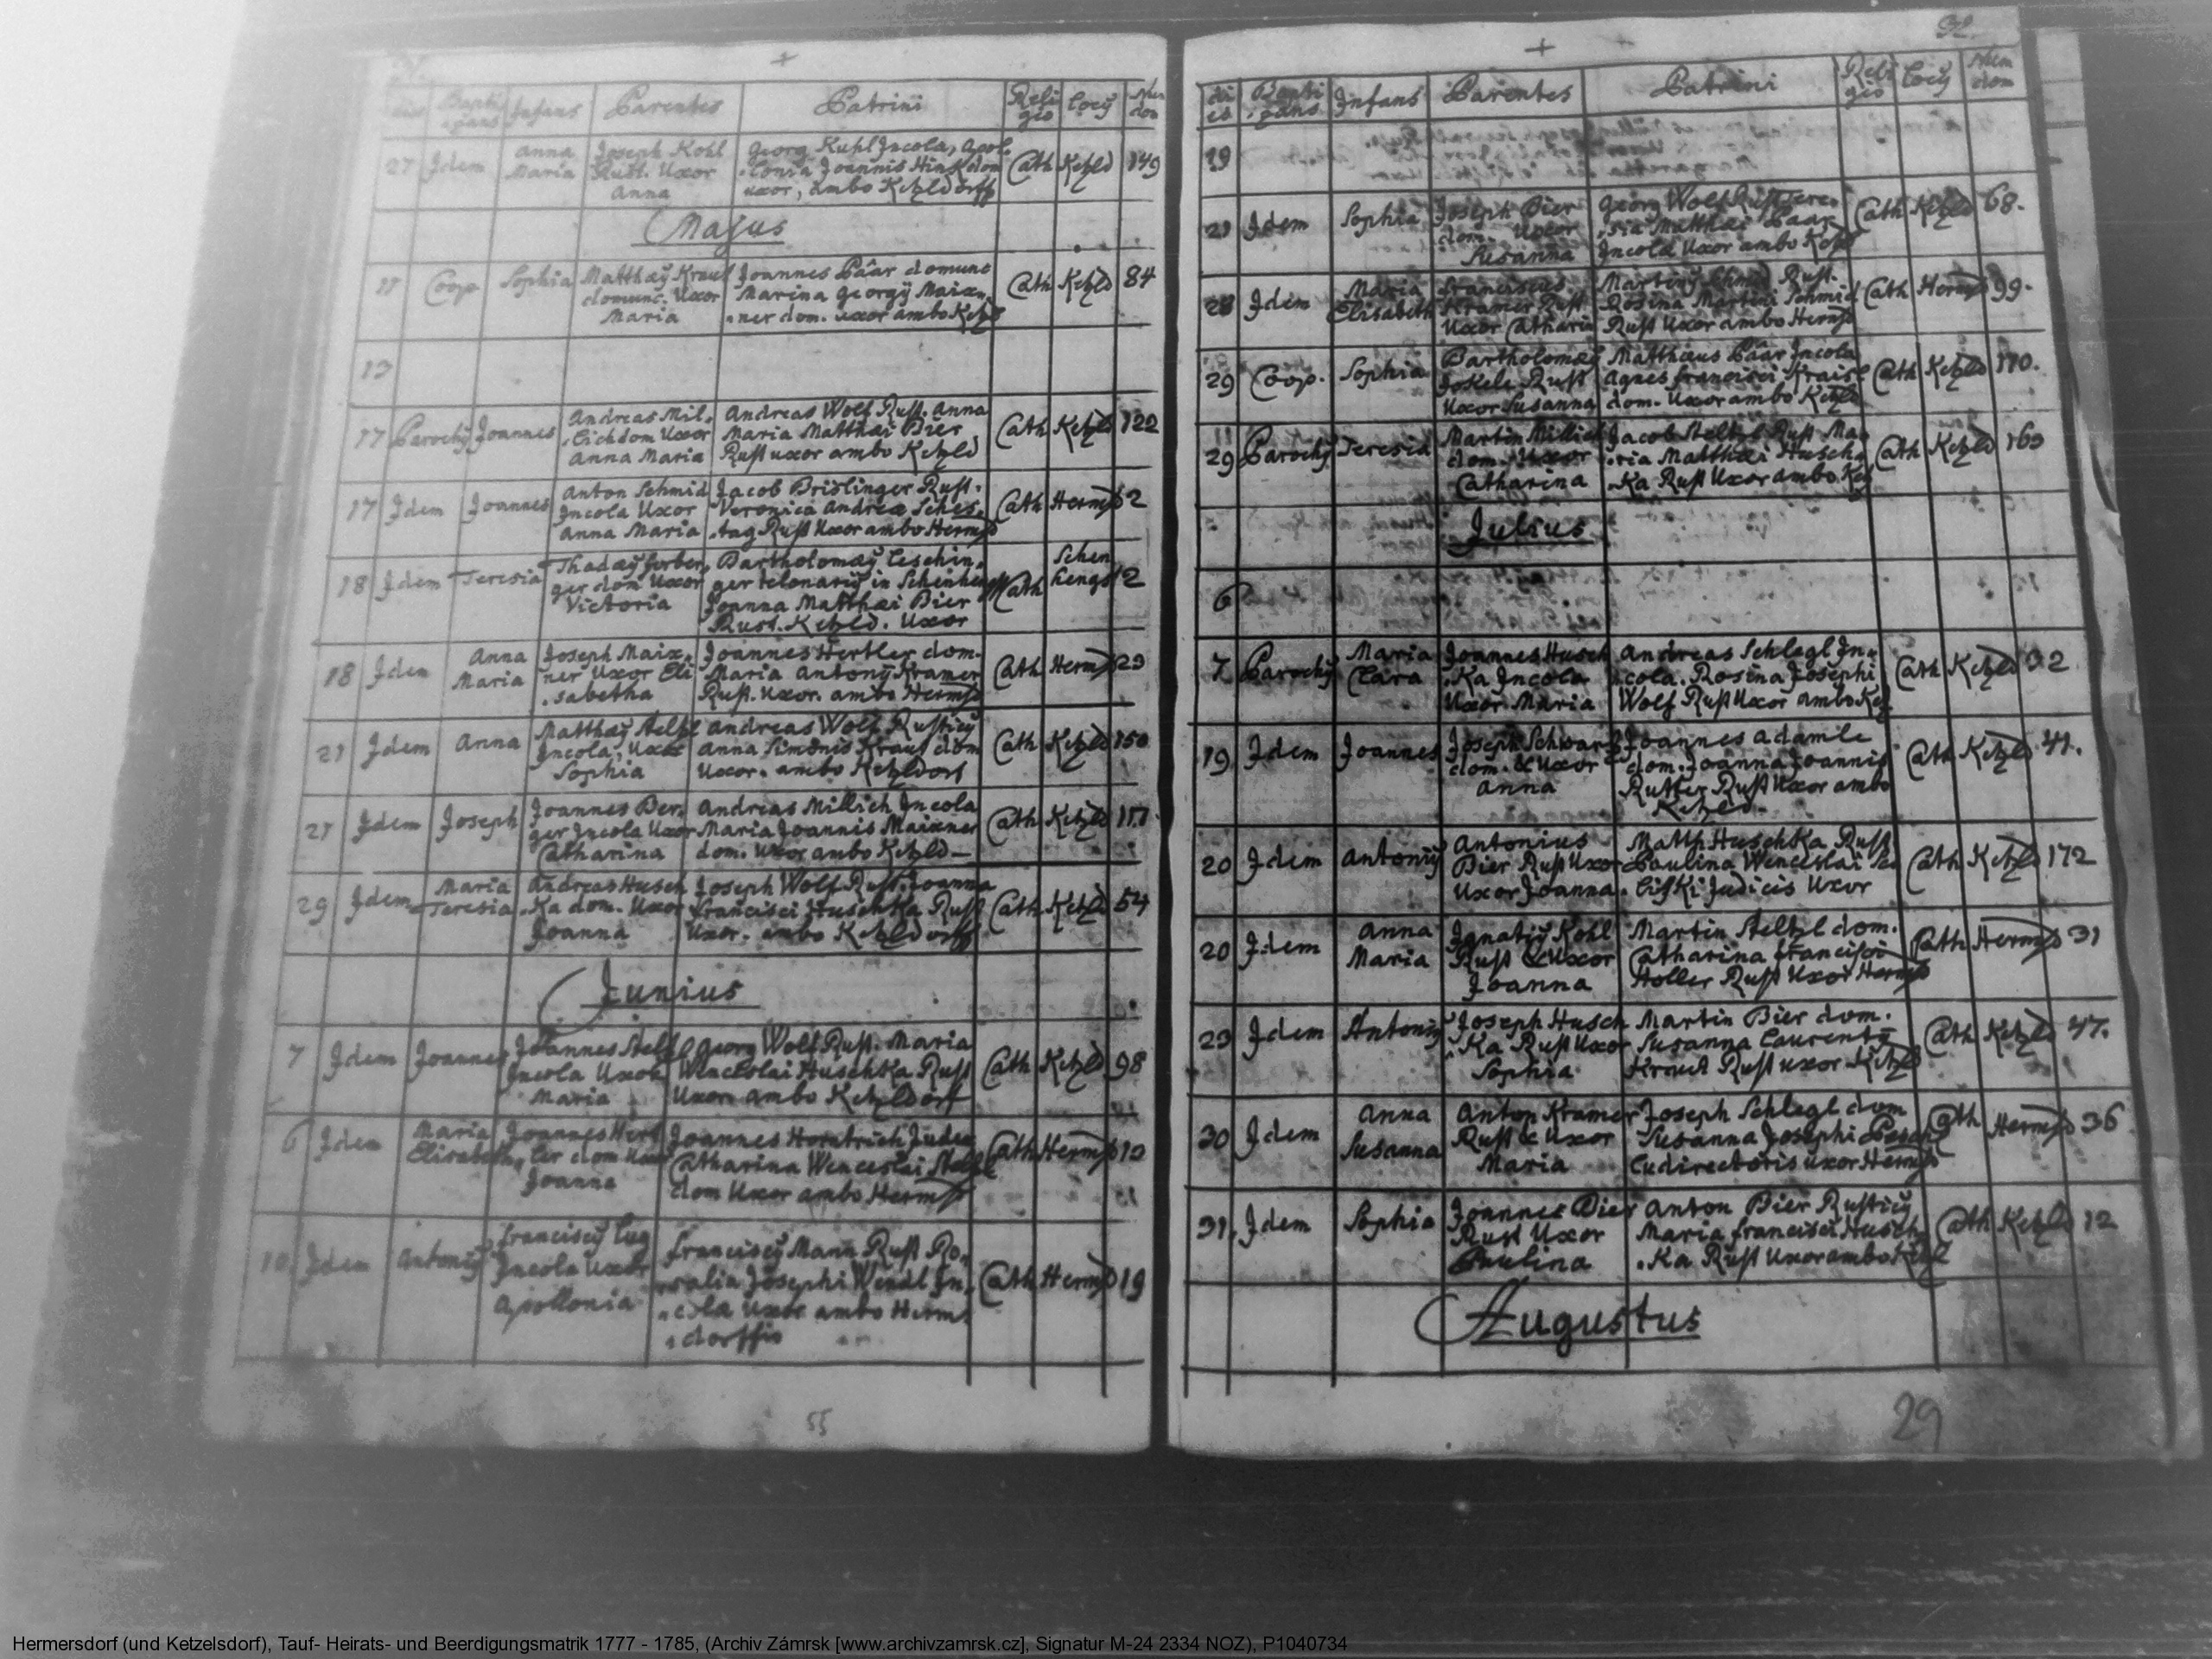 dies Bapti zans Infans Parentes Patrini Reli gio Locy Num dom
27 Idem Anna Maria Joseph Kohl Rust. Uxor Anna
Georg Kuhl Incola, Apol- lonia Joannis Hink dom uxor, ambo Ketzldorff Cath Ketzld 149
Majus
11 Coop Sophia Matthæÿ Kraus domunc. Uxor Maria
Joannes Päar domunc Marina Georgÿ Maix- ner dom. uxor ambo Ketzld Cath Ketzld 84
13
17 Parochÿ Joannes Andreas Mil- lich dom Uxor Anna Maria
Andreas Wolf Rust. Anna Maria Matthæi Bier Rust uxor ambo Ketzld Cath Ketzld 122
17 Idem Joannes Anton Schmid Incola Uxor Anna Maria
Jacob Brislinger Rust. Veronica Andreæ Sches- tag Rust Uxor ambo Hermsd Cath Hermsd 2
18 Idem Teresia Thadæÿ ger dom Uxor Victoria
Bartholomæÿ Leschin- ger telonariÿ in Joanna Matthæi Bier Rust. Ketzld. Uxor Cath Schen hengst 2
18 Idem Anna Maria Joseph Maix- ner Uxor Eli- sabetha
Joannes Hertler dom. Maria Antonÿ Kramer Rust. Uxor. ambo Hermsd Cath Hermsd 23
21 Idem Anna Matthæÿ Steltzl Incola, Uxor Sophia
Andreas Wolf Rusticÿ Anna Simonis Kraus dom Uxor. ambo Ketzldorf Cath Ketzld 150
21 Idem Joseph Joannes Ber- ger Incola Uxor Catharina
Andreas Millich Incola Maria Joannis Maixner dom. Uxor ambo Ketzld Cath Ketzld
29 Idem Maria Teresia Andreas Husch- Ka dom. Uxor Joanna
Joseph Wolf Rust. Joanna Francisci HuschKa Rust Uxor. ambo Ketzldorff Cath Ketzld 54
Junius
7 Idem Joannes Joannes Steltzl Incola Uxor Maria
Georg Wolf Rust. Maria Wenceslai HuschKa Rust Uxor ambo Ketzldorf Cath Ketzld 98
6 Idem Maria Elisabeth Joannes Hert- ler dom Uxor Joanna
Joannes Horntrich Judex Catharina Wenceslai Steltzl dom Uxor ambo Hermsd Cath Hermsd
10 Idem Antonÿ Franciscÿ Lug Incola Uxor Apollonia
Franciscÿ Mann Rust Ro- salia Josephi Wendl In- cola Uxor ambo Herms- dorffio Cath Hermsd 19
55
dies Bapti zans Infans Parentes Patrini Reli gio Locÿ Num dom
19
21 Idem Sophia Joseph Bier dom. Uxor Susanna
Georg Wolf Rust Tere- sia Matthæi Paar Incola Uxor ambo Ketzld Cath Ketzld 68.
28 Idem Maria Elisabeth Franciscus Kramer Rust Uxor Catharin
Martinÿ Schmid Rust. Rosina Martini Schmid Rust Uxor ambo Hermsd Cath Hermsd 99.
29 Coop. Sophia Bartholomæÿ Jokele Rust Uxor Susanna
Matthæus Päar Incola Agnes Francisci Kraisl dom. Uxor ambo Ketzld Cath Ketzld 110.
29 Parochÿ Teresia Martin Millich dom. Uxor Catharina
Jacob Steltzl Rust Ma- ria Matthæi Husch- Ka Rust Uxor ambo Ketz Cath Ketzld 163
Julius
6
7 Parochÿ Maria Clara Joannes Husch- Ka Incola Uxor Maria
Andreas Schlegl In- cola. Rosina Josephi Wolf Rust Uxor ambo Ketz Cath Ketzld 32
19 Idem Joannes Joseph Schwarz dom. & Uxor Anna
Joannes Adamle dom. Joanna Joannis Rutter Rust Uxor ambo Ketzld. Cath Ketzld 41.
20 Idem Antonÿ Antonius Bier Rust Uxor Uxor Joanna
Matth HuschKa Rust Paulina Wenceslai Judicis Uxor Cath Ketzld 172
20 Idem Anna Maria Ignatÿ Kohl Rust & Uxor Joanna
Martin Steltzl dom. Catharina Francisci Holler Rust Uxor Hermsd Cath Hermsd 31
23 Idem Antonÿ Joseph Husch- Ka Rust Uxor Sophia
Martin Bier dom. Susanna Laurentÿ Rust uxor Ketzld Cath Ketzld 47.
30 Idem Anna Susanna Anton Kramer Rust & Uxor Maria
Joseph Schlegl dom Susanna Josephi Ludirectoris uxor Hermsd Cath Hermsd 36
31. Idem Sophia Joannes Bier Rust Uxor Paulina
Anton Bier Rusticÿ Maria Francisci Husch- Ka Rust Uxor ambo Ketzl Cath Ketzld 12
Augustus
29
Hermersdorf (und Ketzelsdorf), Tauf- Heirats- und Beerdigungsmatrik 1777 - 1785, (Archiv Zámrsk [www.archivzamrsk.cz], Signatur M-24 2334 NOZ), P1040734